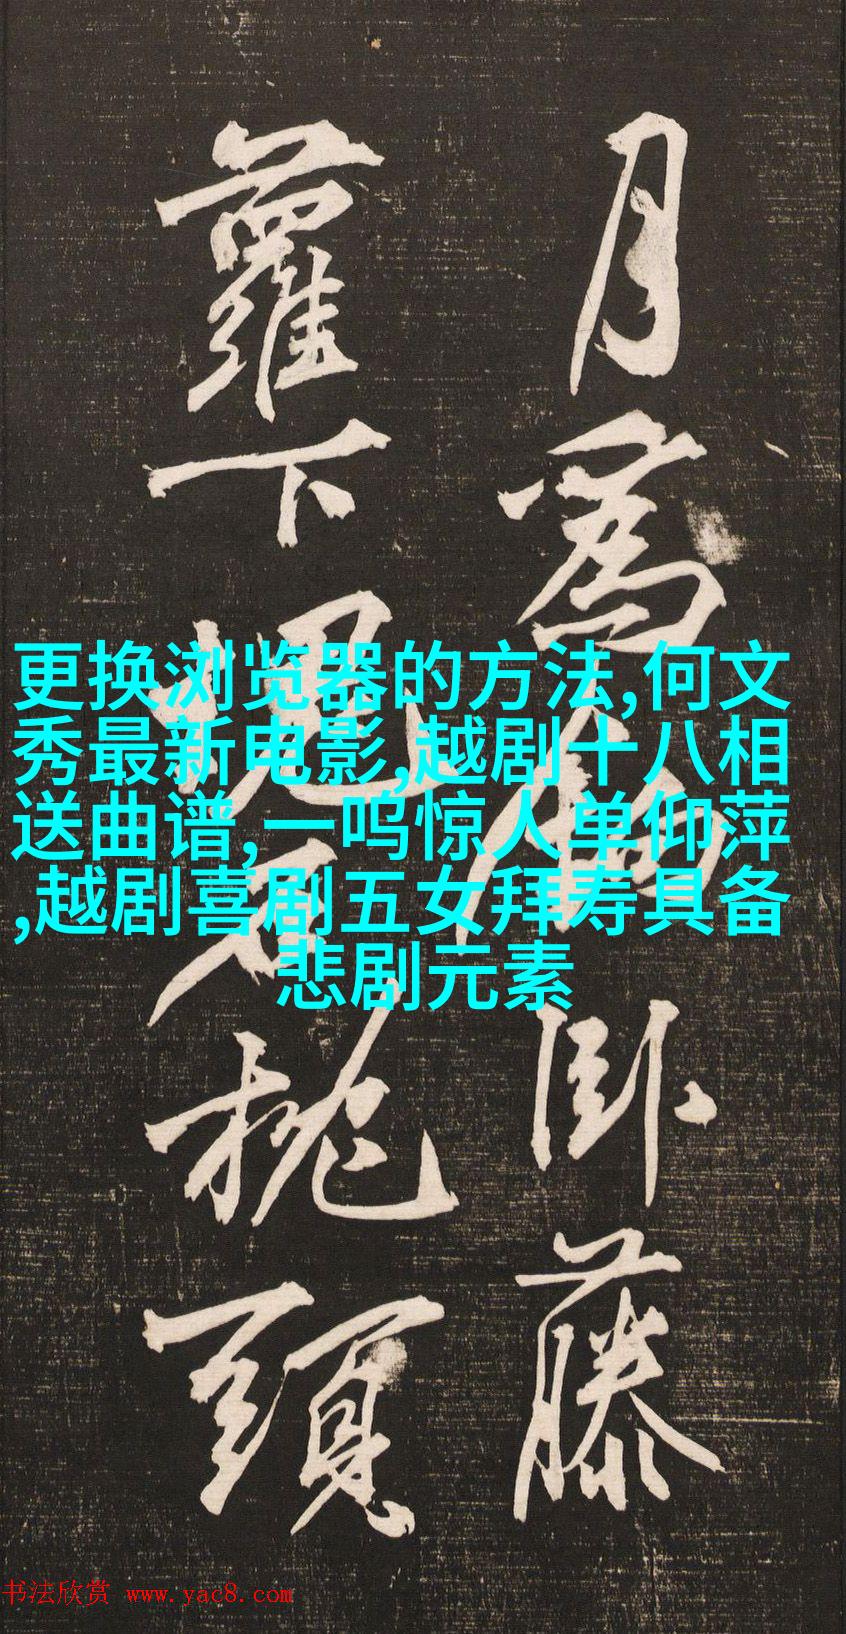 月為卧藤
蘿下塊石枕頭
更换浏览器的方法,何文
秀最新电影,越剧十八相
送曲谱,一鸣惊人单仰萍
,越剧喜剧五女拜寿具备
悲剧元素
书法欣赏 www.yac8.com